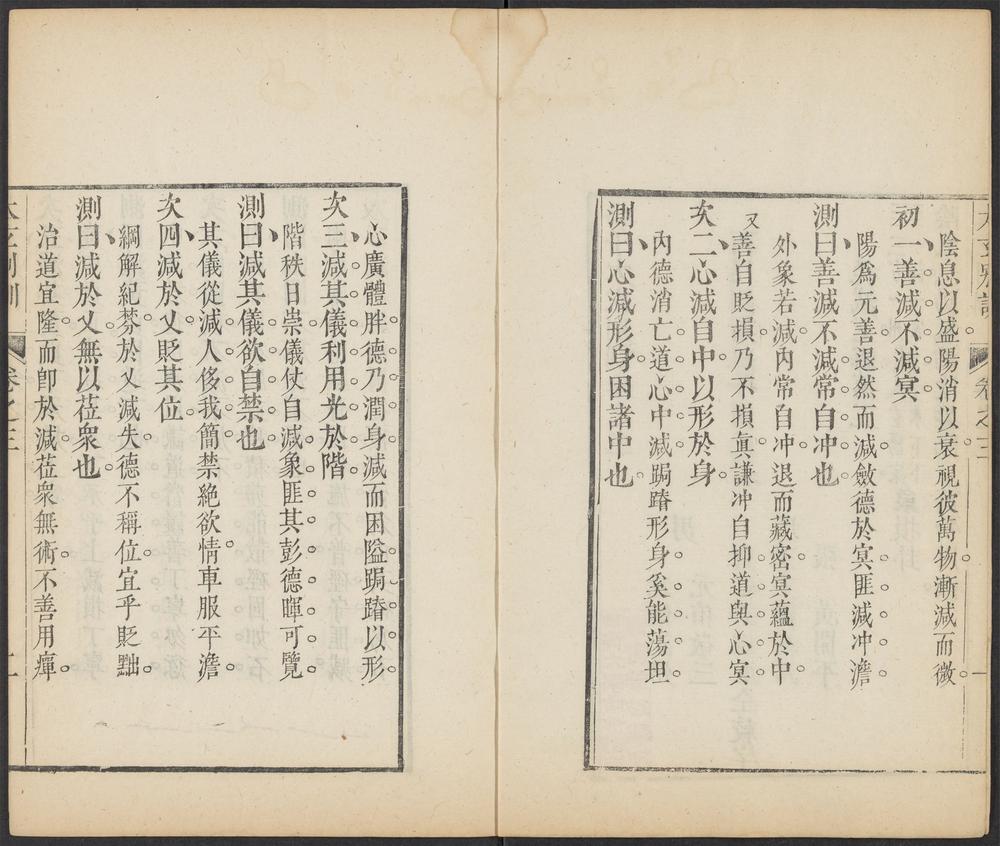 卷之三
陰息以盛陽消以衰視彼萬物漸減而微
初一善減不減冥
陽爲元善退然而減斂德於冥匪減冲澹
測曰善減不減常自冲也
外象若減內常自冲退而藏密冥蘊於中
又善自貶損乃不損眞謙冲自抑道與心冥
次二心減自中以形於身
內德消亡道心中減跼蹐形身奚能蕩坦
測曰心減形身困諸中也
心廣體胖德乃潤身減而困隘跼蹐以形
次三減其儀利用光於階
階秩日崇儀仗自減象匪其彭德暉可覽
測曰減其儀欲自禁也
其儀從減人侈我簡禁絕欲情車服平澹
次四減於乂貶其位
綱解紀棼於乂減失德不稱位宜乎貶黜
測曰減於乂無以莅衆也
治道宜隆而卽於減莅衆無術不善用癉
卷之三